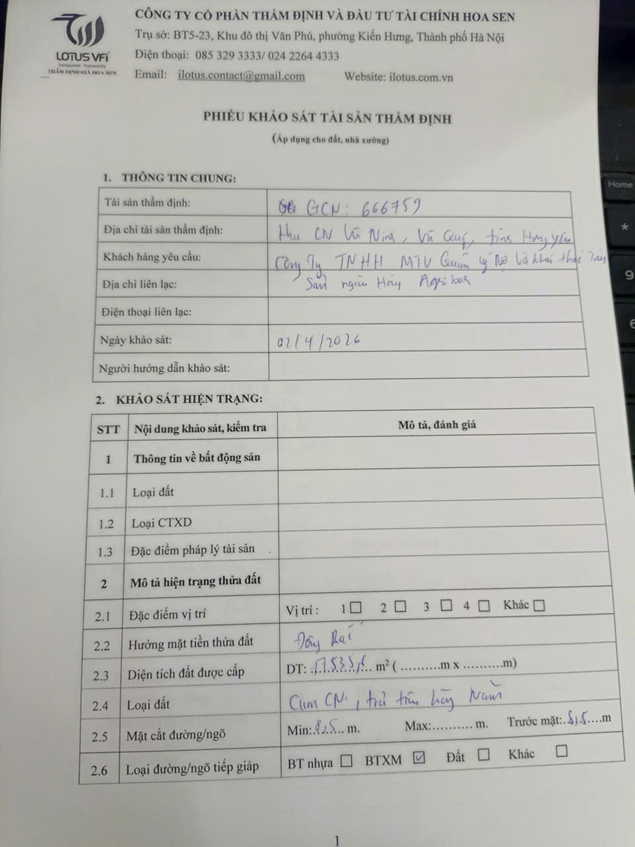 LOTUS VFI
THẨM ĐỊNH GIÁ HOA SEN
CÔNG TY CỔ PHẦN THẨM ĐỊNH VÀ ĐẦU TƯ TÀI CHÍNH HOA SEN
Trụ sở: BT5-23, Khu đô thị Văn Phú, phường Kiến Hưng, Thành phố Hà Nội
Điện thoại: 085 329 3333/ 024 2264 4333
Email: ilotus.contact@gmail.com Website: ilotus.com.vn
PHIẾU KHẢO SÁT TÀI SẢN THẨM ĐỊNH
(Áp dụng cho đất, nhà xưởng)
1. THÔNG TIN CHUNG:
Tài sản thẩm định: GCN: 666759
Địa chỉ tài sản thẩm định: Khu CN Vũ Ninh, Vũ Quý, tỉnh Hưng Yên
Khách hàng yêu cầu: Công Ty TNHH MTV Quản lý Nợ và khai thác
Địa chỉ liên lạc: Sản ngân Hàng
Điện thoại liên lạc:
Ngày khảo sát: 02/4/2026
Người hướng dẫn khảo sát:
2. KHẢO SÁT HIỆN TRẠNG:
STT Nội dung khảo sát, kiểm tra Mô tả, đánh giá
1 Thông tin về bất động sản
1.1 Loại đất
1.2 Loại CTXD
1.3 Đặc điểm pháp lý tài sản
2 Mô tả hiện trạng thửa đất
2.1 Đặc điểm vị trí Vị trí : 1 2 3 4 Khác
2.2 Hướng mặt tiền thửa đất Đông
2.3 Diện tích đất được cấp DT: m² ( ..........m x ..........m)
2.4 Loại đất Cụm CN, trả tiền hàng Năm
2.5 Mặt cắt đường/ngõ Min: 8,5 m. Max:.......... m. Trước mặt: 8,5 m
2.6 Loại đường/ngõ tiếp giáp BT nhựa ☐ BTXM ☑ Đất ☐ Khác ☐
1
Home
*
9